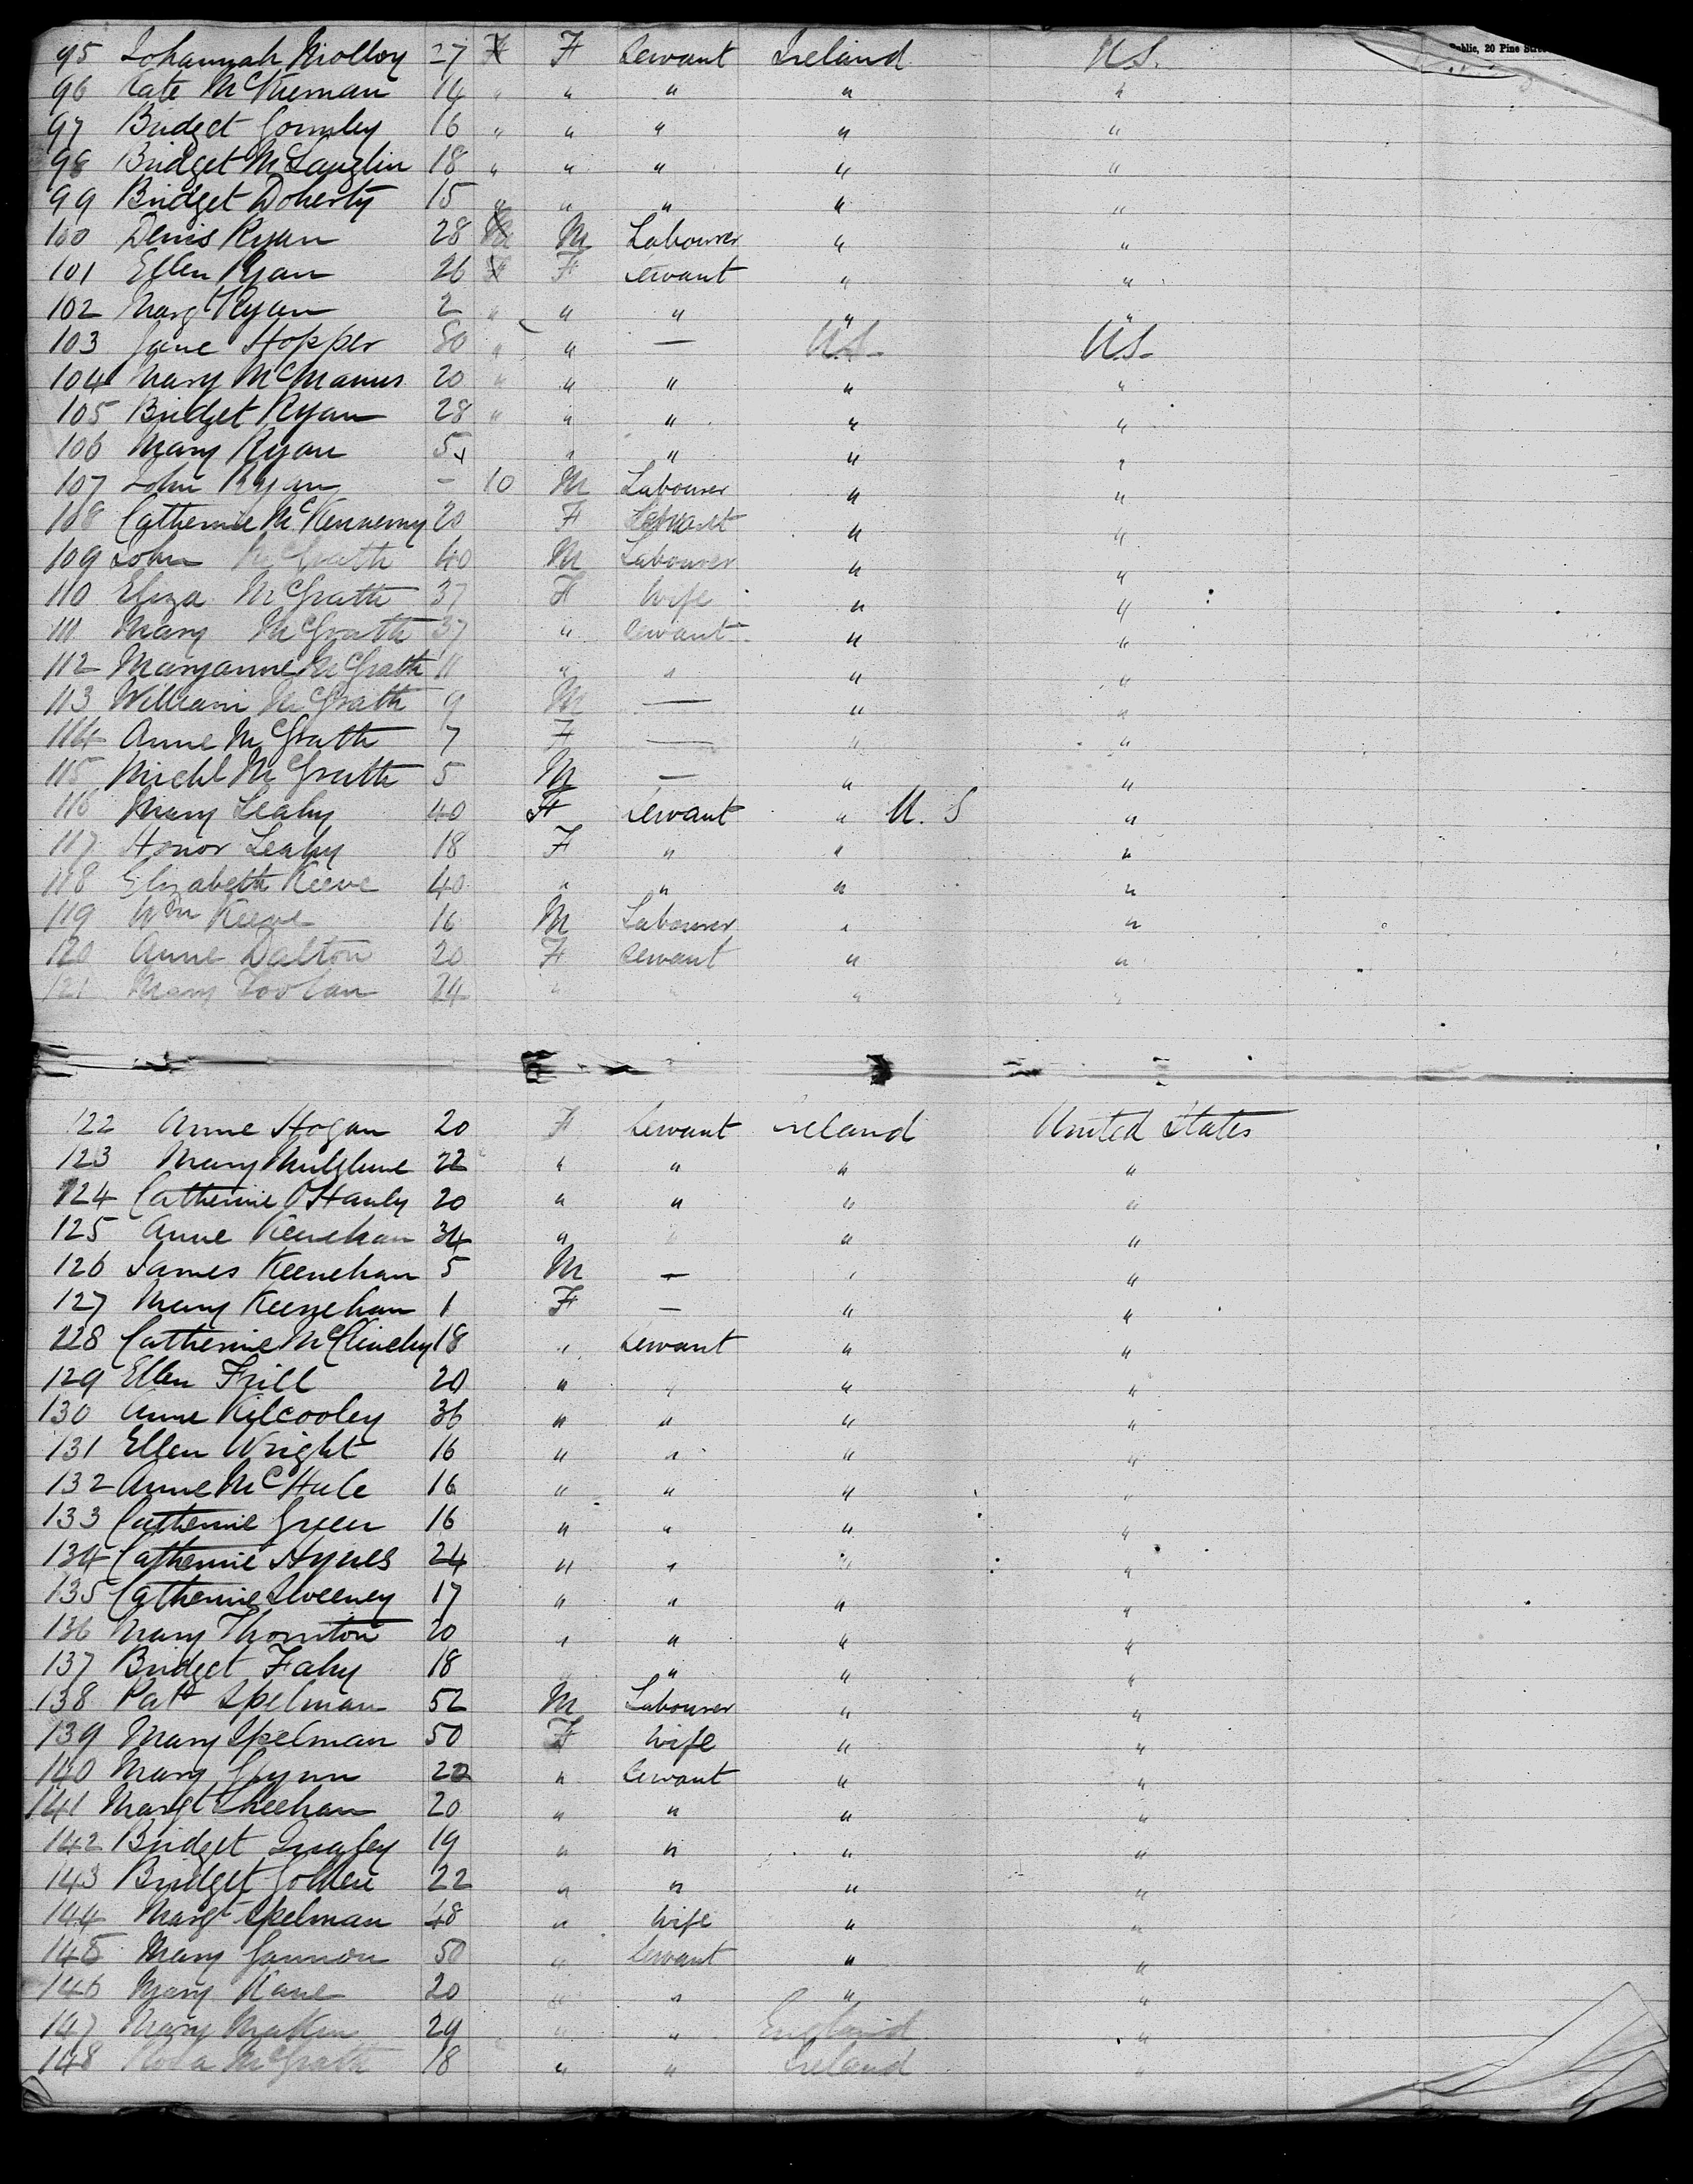 Public, 20 Pine Street
95 Johannah Molloy 27 F F Servant Ireland U.S.
96 Kate McKiernan 14 " " " " "
97 Bridget Gormley 16 " " " " "
98 Bridget McLauglin 18 " " " " "
99 Bridget Doherty 15 " " " " "
100 Denis Ryan 28 M M Labourer " "
101 Ellen Ryan 26 F F Servant " "
102 Margt Ryan 2 " " " " "
103 Jane Hopper 80 " " — U.S. U.S.
104 Mary McManus 20 " " " " "
105 Bridget Ryan 28 " " " " "
106 Mary Ryan 5 " " " "
107 John Ryan - 10 M Labourer " "
108 Catherine McKennerny 20 F Servant " "
109 John McGrath 40 M Labourer " "
110 Eliza McGrath 37 F Wife " "
111 Mary McGrath 37 " Servant " "
112 Maryanne McGrath 11 " " " "
113 William McGrath 9 M — " "
114 Anne McGrath 7 F — " "
115 Michl McGrath 5 M — " "
116 Mary Leahy 40 F Servant " U.S "
117 Honor Leahy 18 F " " "
118 Elizabeth Keeve 40 " " " "
119 Wm Keeve 16 M Labourer " "
120 Anne Dalton 20 F Servant " "
121 Mary Toolan 24 " " "
122 Anne Hogan 20 F Servant Ireland United States
123 Mary 22 " " " "
124 Catherine O'Hanly 20 " " " "
125 Anne Keenehan 34 " " " "
126 James Keenehan 5 M — " "
127 Mary Keenehan 1 F — " "
128 Catherine McClinchy 18 " Servant " "
129 Ellen Frill 20 " " " "
130 Anne Kilcooley 36 " " " "
131 Ellen Wright 16 " " " "
132 Anne McHale 16 " " " "
133 Catherine Green 16 " " " "
134 Catherine Hynes 24 " " " "
135 Catherine Sweeney 17 " " " "
136 Mary Thornton 20 " " " "
137 Bridget Fahy 18 " " " "
138 Patt Spelman 52 M Labourer " "
139 Mary Spelman 50 F Wife " "
140 Mary Glynn 22 " Servant " "
141 Margt Sheehan 20 " " " "
142 Bridget Quigley 19 " " " "
143 Bridget Golden 22 " " " "
144 Margt Spelman 48 " Wife " "
145 Mary Gannon 50 " Servant " "
146 Mary Kane 20 " " " "
147 Mary 29 " " England "
148 McGrath 18 " " Ireland "